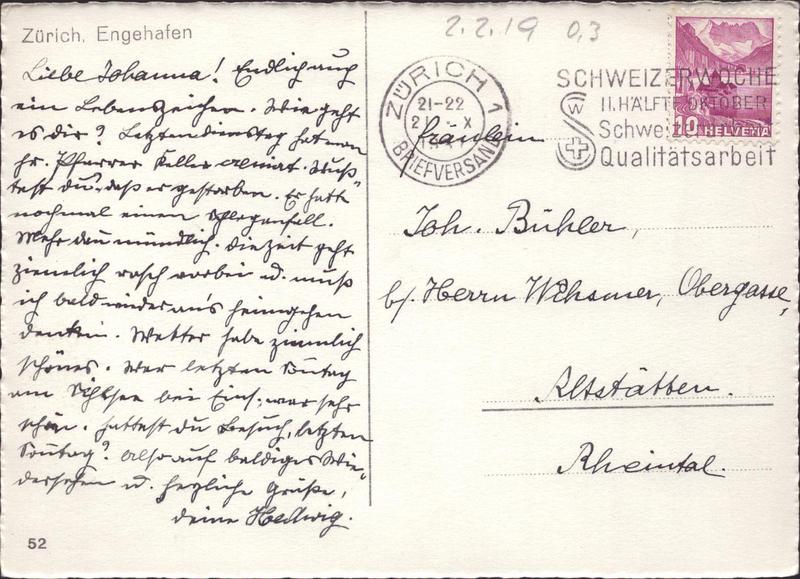 Zürich, Engehafen
Liebe Johanna! Endlich auch
ein Lebenszeichen. Wie geht
es dir? Letzten dienstag hat man
hr. Pfarrer Keller Wuß=
test du, daß er gestorben. Er hatte
nochmal einen
Mehr dan mündlich. die zeit geht
ziemlich rasch vorbei u. muß
ich bald wieder an's heimgehen
denken. Wetter habe ziemlich
schönes. War letzten Sontag
am Sihlsee bei Eins. war sehr
schön. hattest du Besuch, letzten
Sontag? Also auf baldiges Wie=
dersehen u. herzliche Grüße,
deine Hedwig.
52
2.2.19 0,3
ZÜRICH 1
21-22
21 X
BRIEFVERSAND
SCHWEIZERWOCHE
II. HÄLFTE OKTOBER
Schwei
Qualitätsarbeit
10 HELVETIA
Fräulein
Joh. Bühler,
b/ Herrn Obergasse,
Altstätten.
Rheintal.